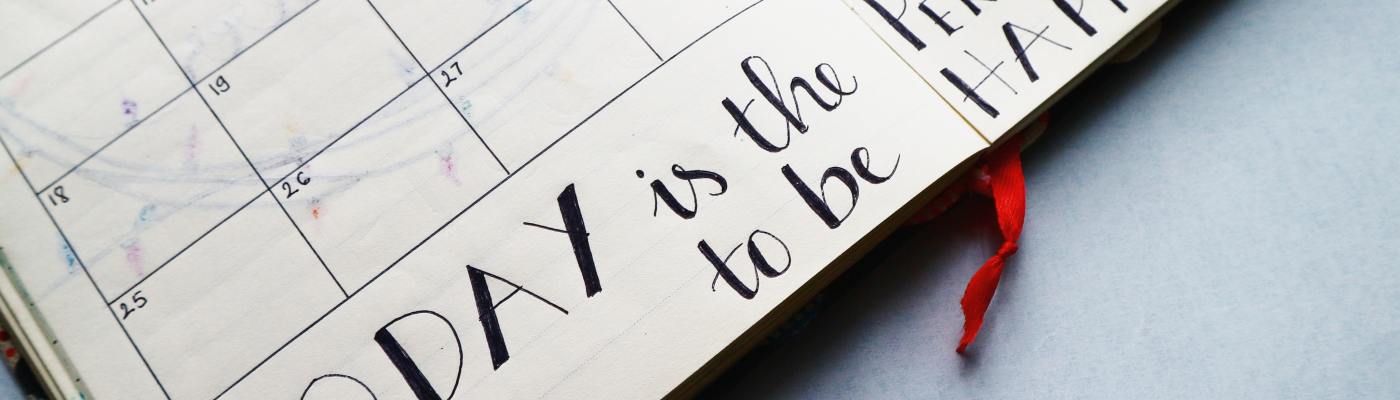 19
27
18
26
25
ODAY is the PER
to be HAPP